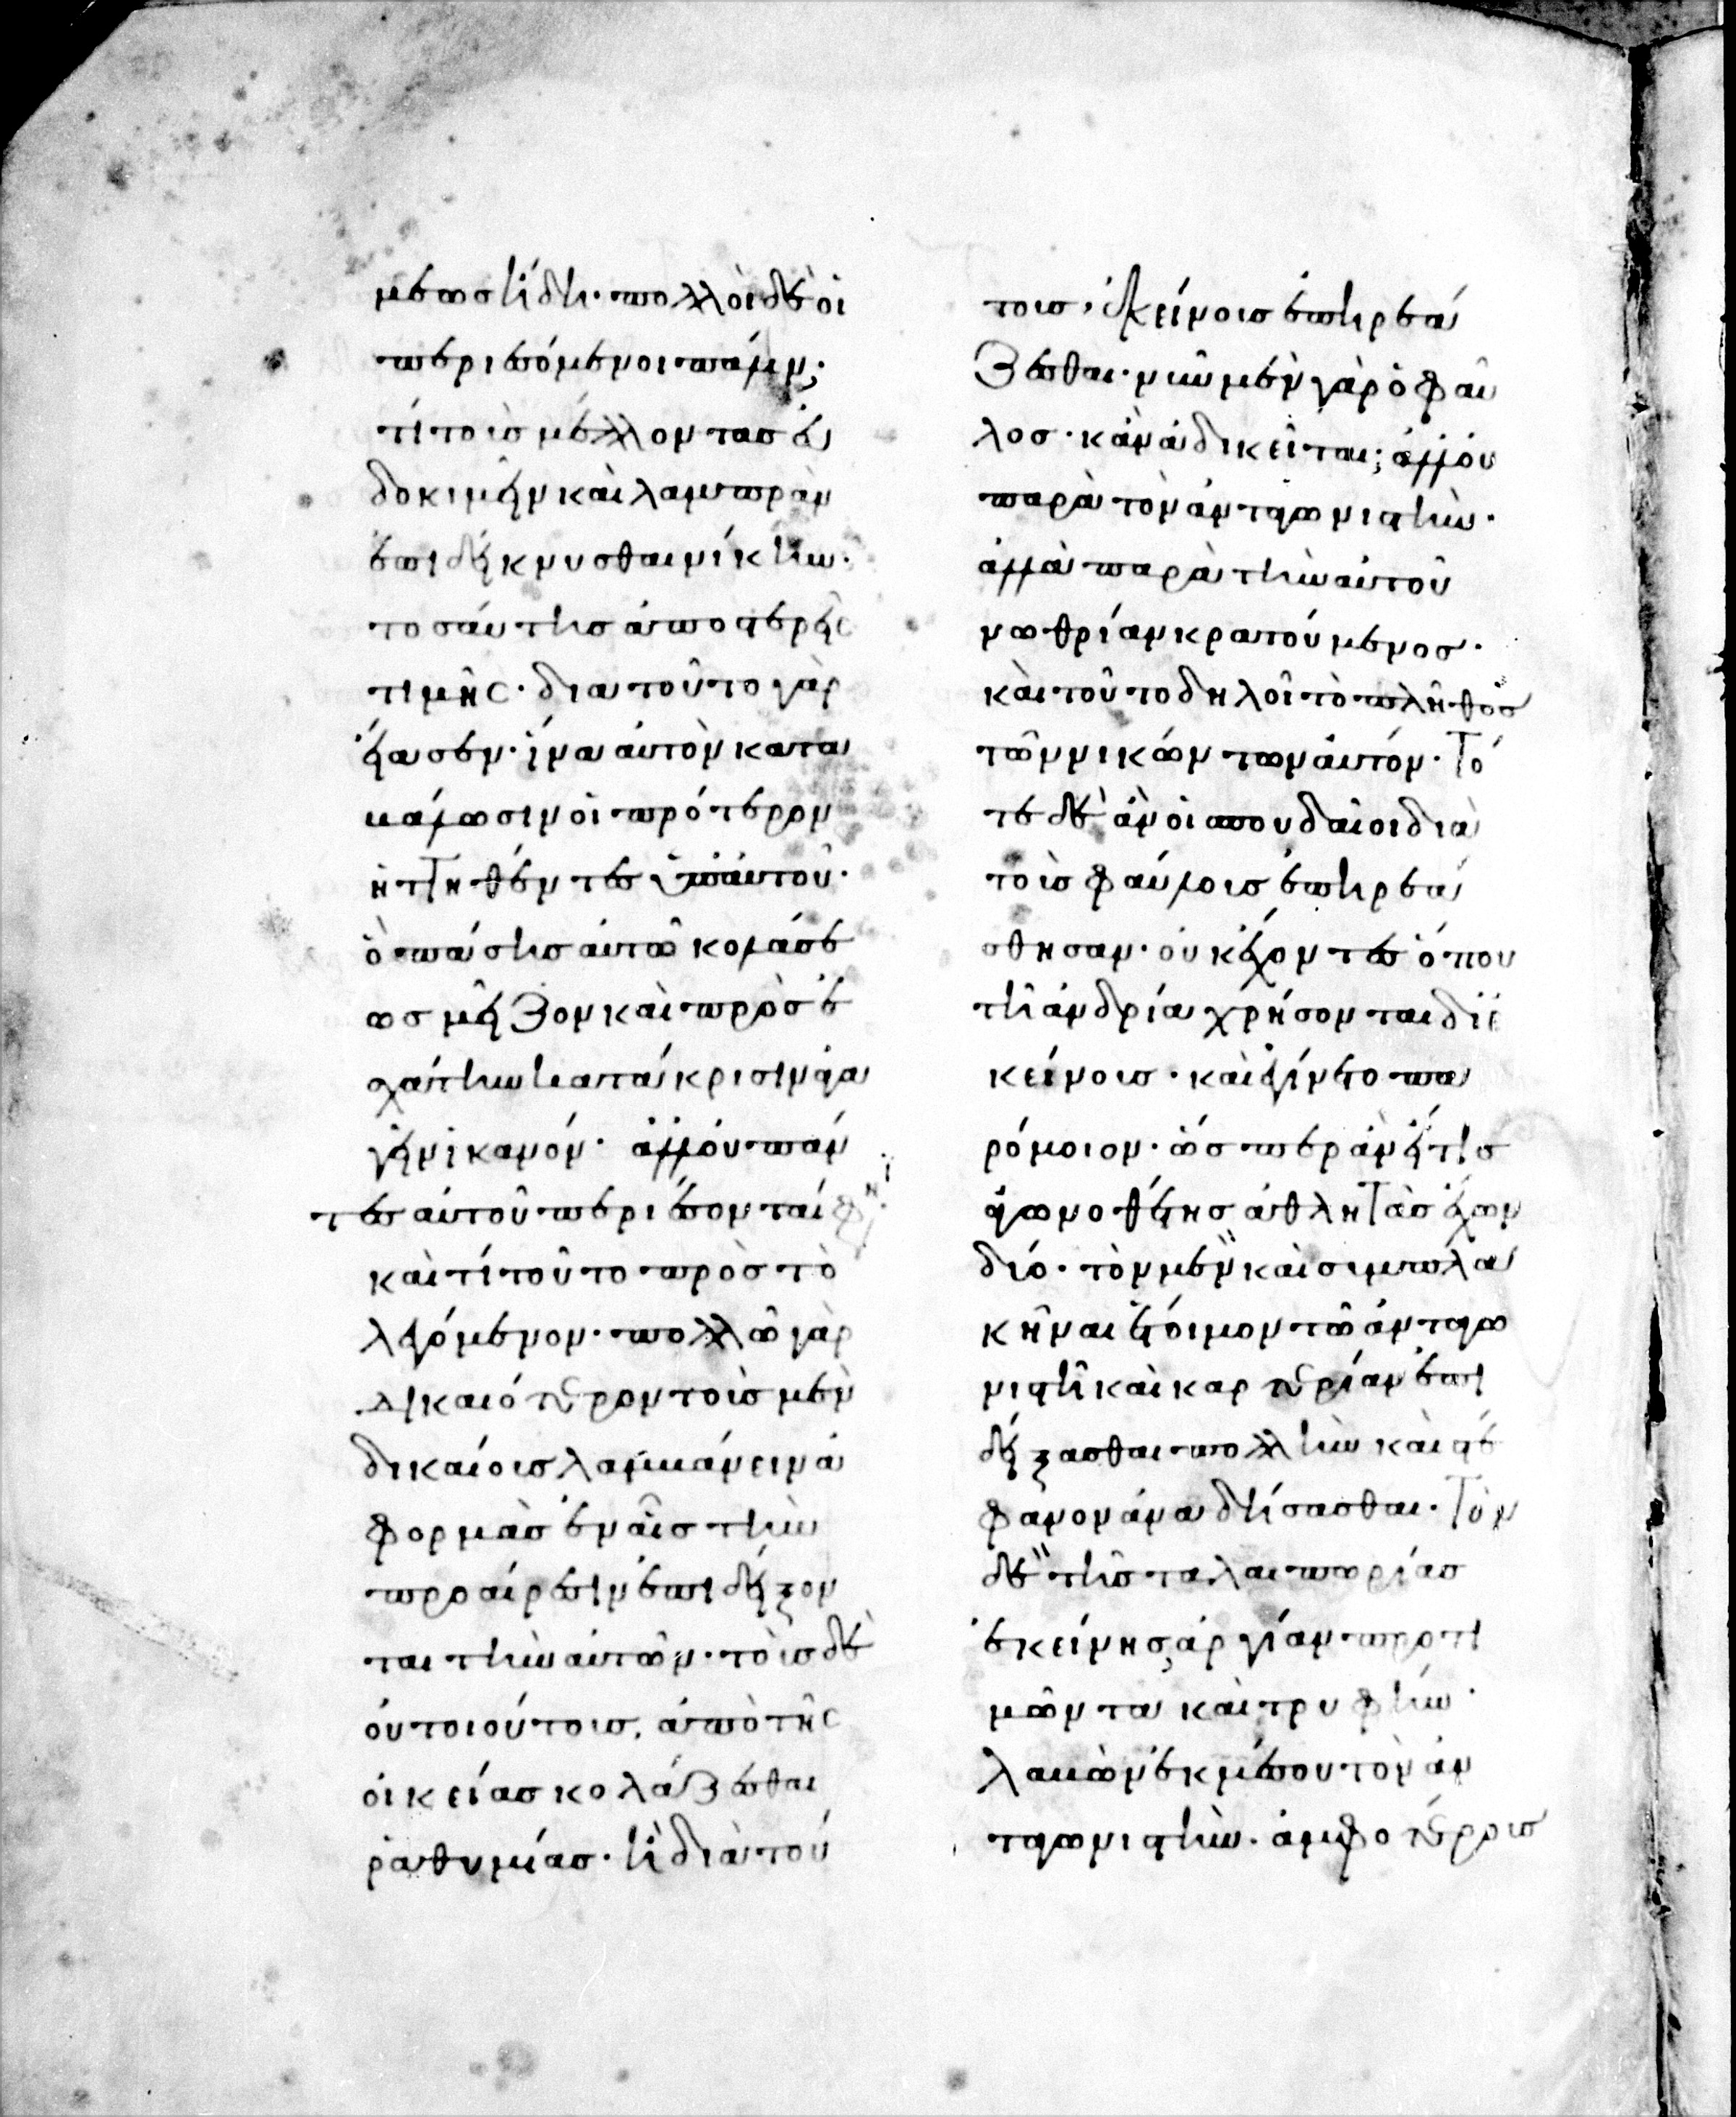 μέσως ἤδη· πολλοὶ δὲ οἱ
περιεπόμενοι πάλιν;
τί τοὺς μέλλοντας εὐ
δοκιμεῖν καὶ λαμπρὰν
ἐπιδείκνυσθαι νίκην·
τοσαύτης ἀποστερεῖς
τιμῆς· διὰ τοῦτο γὰρ
εἴασεν· ἵνα αὐτὸν κατα
βάλωσιν οἱ πρότερον
ἡττηθέντες ὑπ' αὐτοῦ·
ὃ πάσης αὐτῶ κολάσε
ως μεῖζον καὶ πρὸς ἐ
σχάτην κατάκρισιν ἀγα
γεῖν ἱκανόν· ἀλλ' οὐ πάν
τες αὐτοῦ περιέσονταί φησι·
καὶ τί τοῦτο πρὸς τὸ
λεγόμενον· πολλῶ γὰρ
δικαιότερον τοῖς μὲν
δικαίοις λαμβάνειν ἀ
φορμὰς ἐν αἷς τὴν
προαίρεσιν ἐπιδείξον
ται τὴν αὐτῶν· τοῖς δὲ
οὐ τοιούτοις, ἀπὸ τῆς
οἰκείας κολάζεσθαι
ῥαθυμίας· ἢ διὰ τού
τοις, ἐκείνοις ἐπηρεά
ζεσθαι· νῦν μὲν γὰρ ὁ φαῦ
λος· κἂν ἀδικεῖται; ἀλλ' οὐ
παρὰ τὸν ἀνταγωνιστὴν·
ἀλλὰ παρὰ τὴν αὐτοῦ
νωθρίαν κρατούμενος·
καὶ τοῦτο δηλοῖ τὸ πλῆθος
τῶν νικώντων αὐτόν· Τό
τε δὲ ἂν οἱ σπουδαῖοι διὰ
τοὺς φαύλοις ἐπηρεά
σθησαν· οὐκ ἔχοντες ὅπου
τῆ ἀνδρία χρήσονται δι' ἐ
κείνοις· καὶ γίνετο πα
ρόμοιον· ὥσπερ ἂν εἴ τις
ἀγωνοθέτης ἀθλητὰς ἔχων
δύο· τὸν μὲν καὶ συμπλα
κῆναι ἕτοιμον τῶ ἀνταγω
νιστῆ καὶ καρτερίαν ἐπι
δείξασθαι πολλὴν καὶ στέ
φανον ἀναδήσασθαι· Τὸν
δὲ τῆς ταλαιπωρίας
ἐκείνης, ἀργίαν προτι
μῶντα καὶ τρυφὴν·
λαβὼν ἐκ μέσου τὸν ἀν
ταγωνιστὴν· ἀμφοτέροις